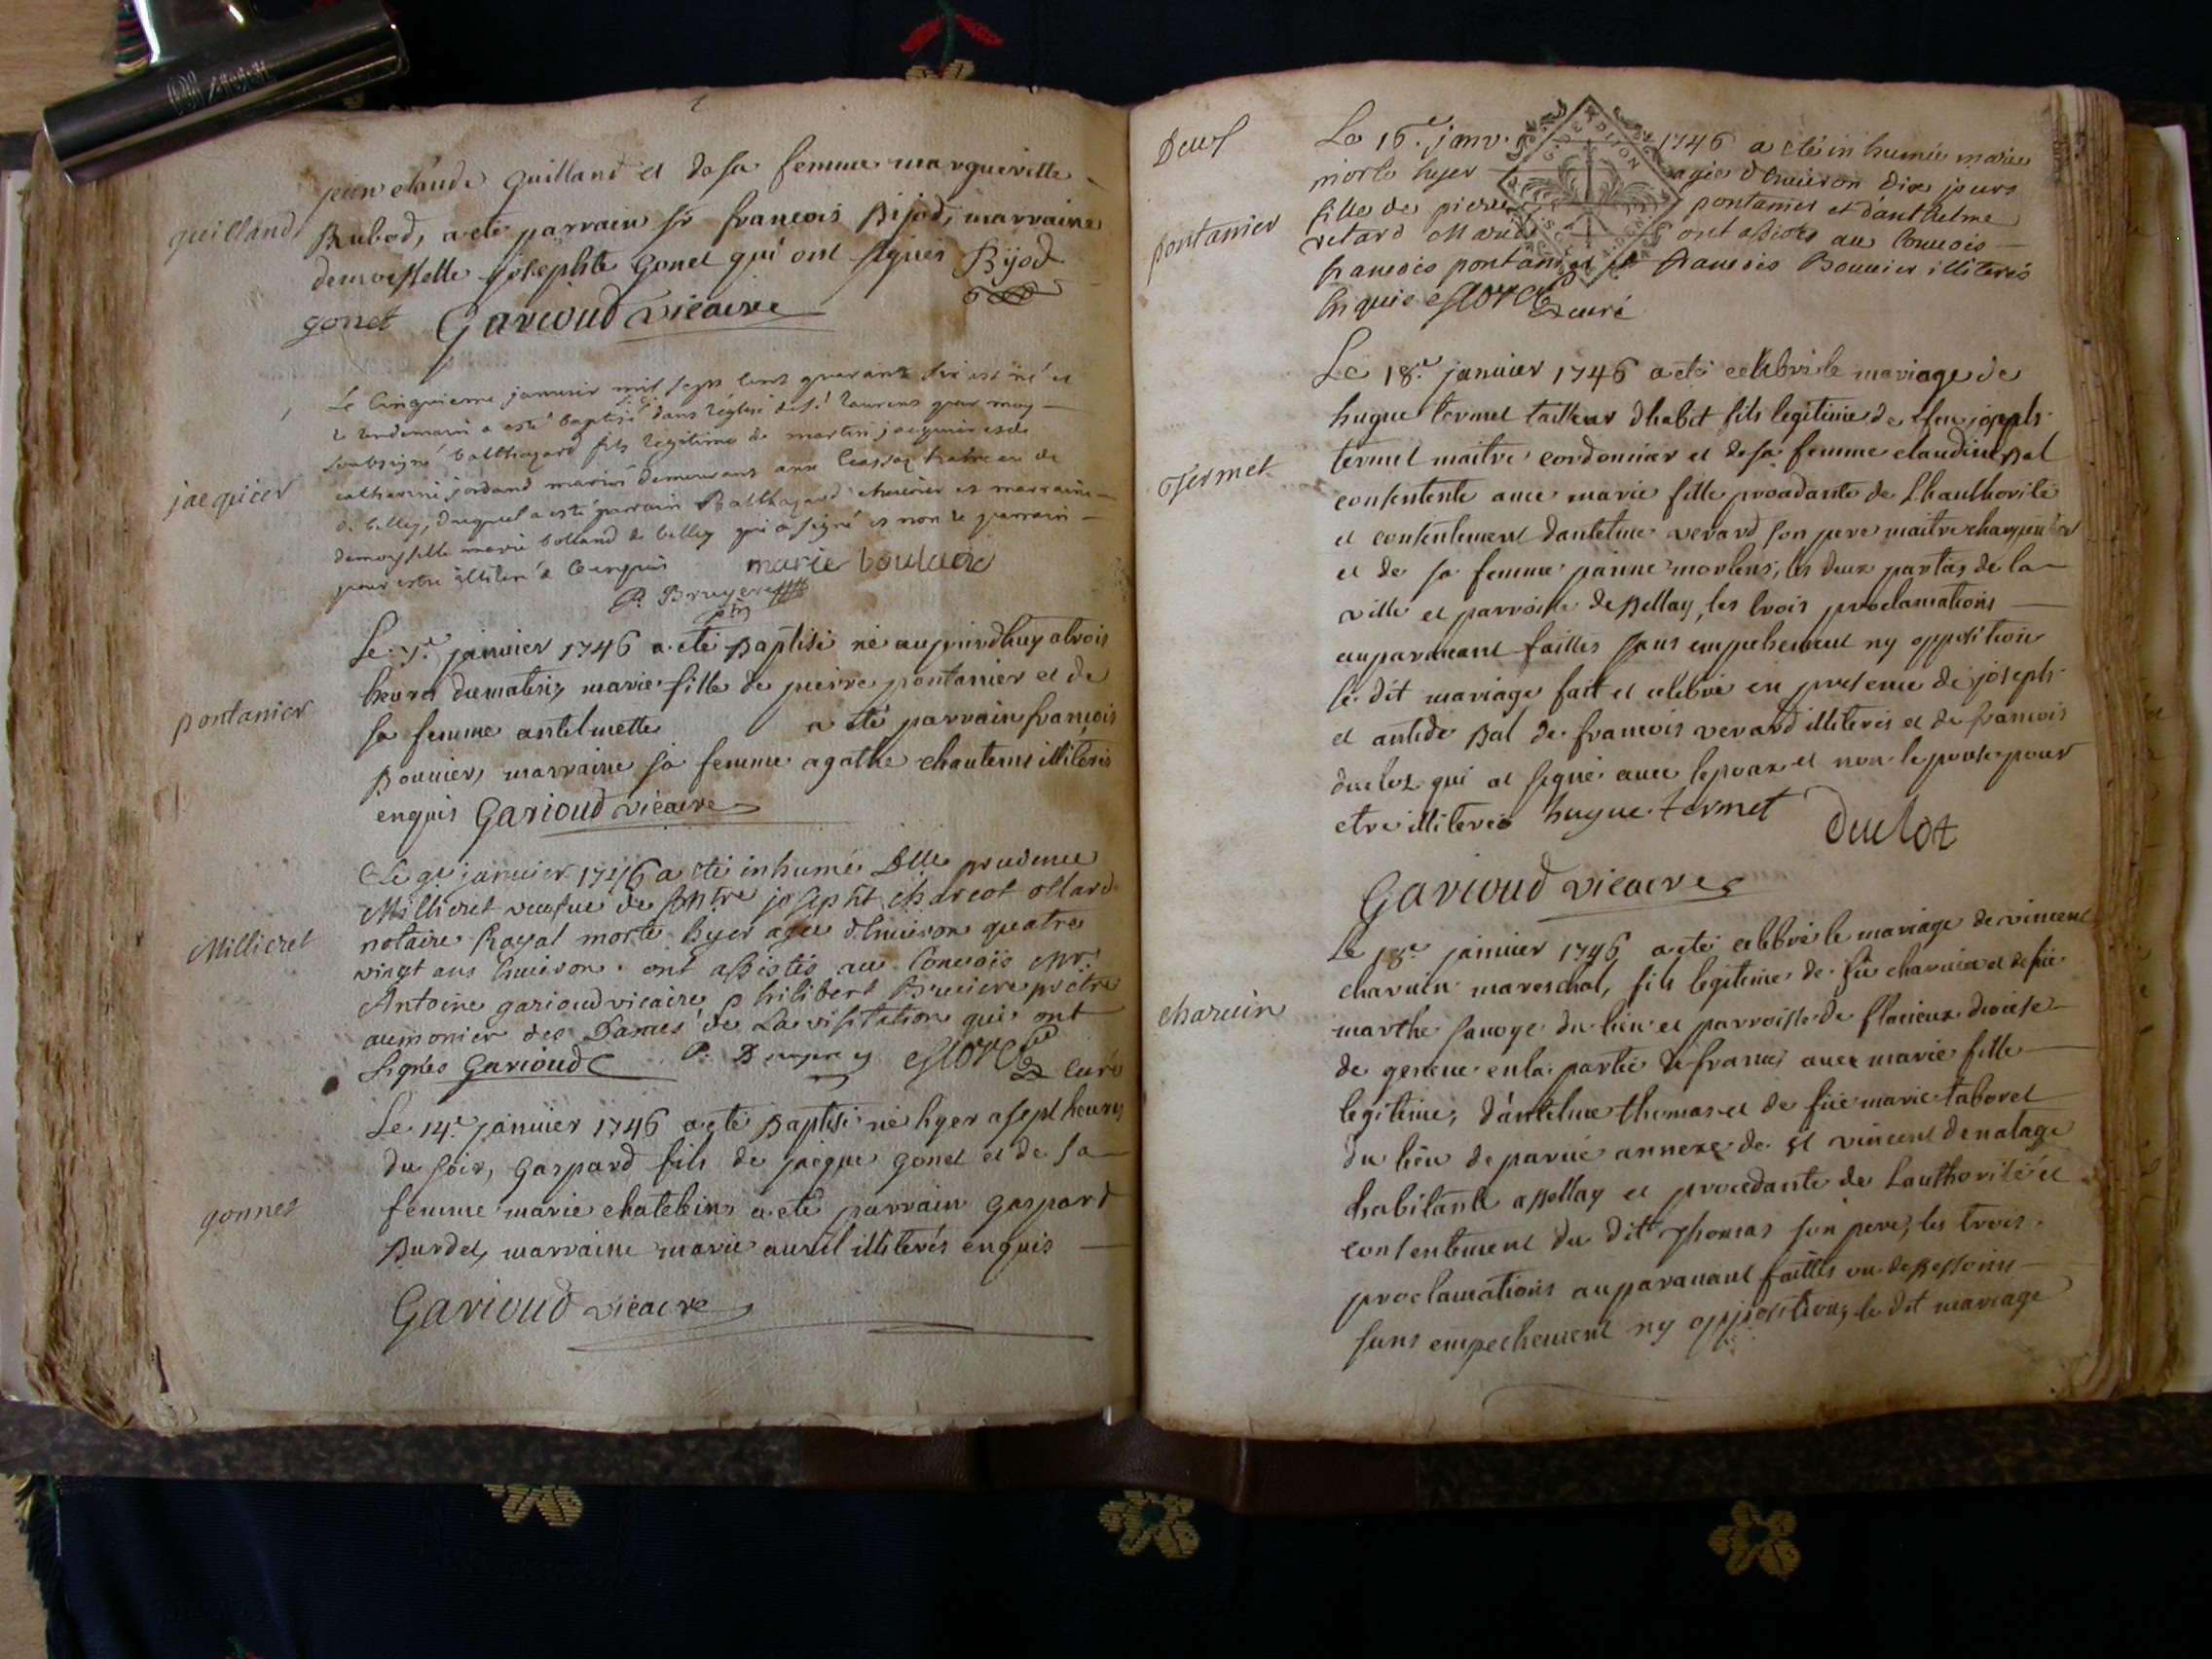 guilland
jean claude guilland et de sa femme margueritte
Rubod, a eté parrain sr francois Bijod, marraine
demoiselle josephte gonet qui ont signés Bijod
gonet Garioud vicaire
jacquier
Le Cinquieme janvier mil sept cent quarante six est né et
le lendemain a esté baptisé dans l'église de st laurent par moy
soubsigné balthazard fils legitime de martin jacquier et de
catherine jordand mariés demeurant aux
de belley, duquel a esté parrain Balthazard et marraine
demoyselle marie bolland de belley qui a signé et non le parrain
pour estre illiteré de ce enquis marie boulade
P. Bruyere
ptre
pontanier
Le 7e janvier 1746 a eté Baptisé né aujourdhuy a trois
heures du matin, marie fille de pierre pontanier et de
sa femme antelmette a été parrain francois
Bouvier, marraine sa femme agathe chautems illiterés
enquis Garioud vicaire
Millieret
Le 9e janvier 1746 a eté inhumé Dlle prudence
Millieret veufue de joseph Marcot
notaire Royal morte hyer agée d'environ quatre
vingt ans Environ. ont assistés au Convois Mr.
Antoine garioud vicaire philibert Bruiere pretre
aumonier des Dames de La visitation qui ont
signés Garioud P. Bruyere curé
gonnet
Le 14e janvier 1746 a eté Baptisé né hyer a sept heures
du soir, gaspard fils de jacque gonet et de sa
femme marie chatelain, a eté parrain gaspard
Burdet, marraine marie illiterés enquis
Garioud vicaire
Deuf
pontanier
Le 16e janv. 1746 a eté inhumée marie
morte hyer agée d'Environ dix jours
fille de pierre pontanier et d'anthelme
ont assistés au Convois
francois pontanier et francois Bouvier illiterés
Enquis curé
G. DEXPEDITION
Termet
Le 18e janvier 1746 a eté celebré le mariage de
hugue termet tailleur d'habit fils legitime de feu joseph
termet maitre cordonnier et de sa femme claudine Bal
consentente avec marie fille procedante de L'hauthorité
et consentement dantelme verard son pere maitre charpentier
et de sa femme janne morlens, les deux parties de la
ville et parroisse de Bellay, les trois proclamations
auparavant faittes sans empechement ny opposition
le dit mariage fait et celebré en presence de joseph
et antide Bal de francois verard illiterés et de francois
ducloz qui at signé avec lepoux et non lepouse pour
etre illiterés hugue termet Duclot
Garioud vicaire
charvin
Le 18e janvier 1746 a eté celebré le mariage de vincent
charvin mareschal, fils legitime de fû charvin et de fue
marthe savoye du lieu et parroisse de diocese
de geneve en la partie de france avec marie fille
legitime, dantelme thomas et de fue marie taboret
du lieu de parve annexe de st vincent de natage
habitante a Bellay et procedante de Lauthorité et
consentement du dit Thomas son pere, les trois
proclamations auparavant faittes
sans empechement ny opposition, le dit mariage